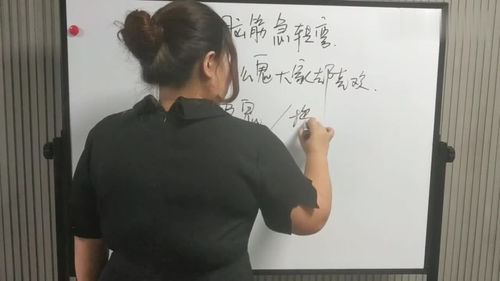 脑筋急转弯.
么鬼大家都喜欢.
鬼 /